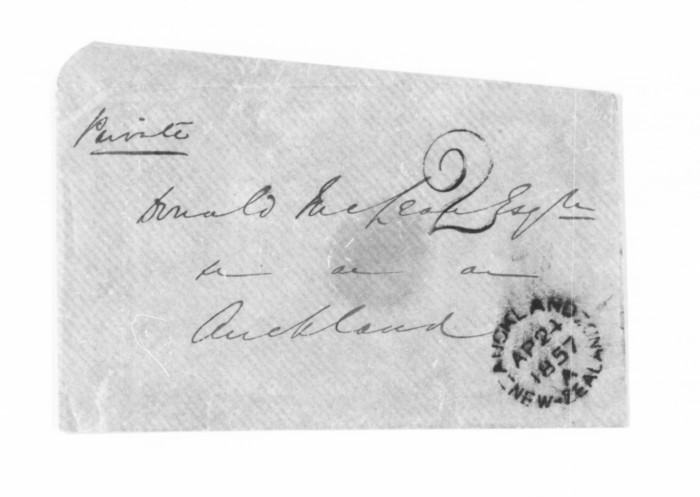 Private
Donald McLean Esqre
2
Auckland
AUCKLAND
NEW-ZEALAND
AP 24
1857
A